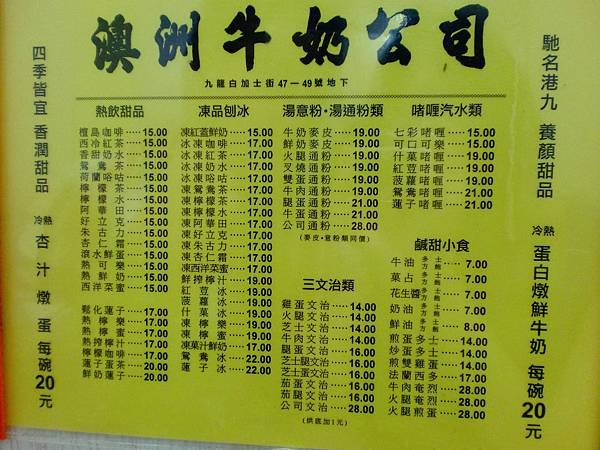 澳洲牛奶公司
九龍白加士街47－49號地下
四季皆宜 香潤甜品
冷熱 杏汁燉蛋 每碗20元
熱飲甜品
檀島咖啡……15.00
西冷紅茶……15.00
香甜奶水……15.00
鴛鴦茶……15.00
荷蘭唂咕……15.00
檸檬茶……15.00
檸檬水……15.00
阿華田……15.00
好立克……15.00
朱古力……15.00
杏仁霜……15.00
滾水鮮蛋……15.00
熱可樂……15.00
熱鮮奶……15.00
西洋菜蜜……15.00
鬆化蓮子……17.00
熱檸樂……17.00
熱檸蜜……17.00
熱搾檸汁……17.00
檸檬咖啡……17.00
熱蛋茶……17.00
蓮子蛋……20.00
鮮奶蓮子……20.00
凍品刨冰
凍紅蓋鮮奶……15.00
冰凍咖啡……17.00
冰凍紅茶……17.00
冰凍奶水……17.00
冰凍唂咕……17.00
凍鴛鴦茶……17.00
凍檸檬茶……17.00
凍檸檬水……17.00
凍阿華田……17.00
凍好立克……17.00
凍朱古力……17.00
凍杏仁霜……17.00
凍西洋菜蜜……17.00
鮮搾檸汁……19.00
紅荳冰……19.00
菠蘿冰……19.00
什菓冰……19.00
凍檸樂……19.00
凍檸蜜……19.00
凍菓汁鮮奶……17.00
鴛鴦冰……22.00
蓮子冰……22.00
湯意粉·湯通粉類
牛奶麥皮……19.00
鮮奶麥皮……19.00
火腿通粉……19.00
叉燒通粉……19.00
雙蛋通粉……19.00
牛肉通粉……19.00
腿蛋通粉……21.00
牛蛋通粉……21.00
公司通粉……28.00
（麥皮·意粉類同價）
三文治類
雞蛋文治……14.00
火腿文治……14.00
芝士文治……14.00
牛肉文治……14.00
腿蛋文治……16.00
芝士腿文治……16.00
芝士蛋文治……16.00
茄蛋文治……16.00
茄牛文治……16.00
公司文治……28.00
（烘底加1元）
啫喱汽水類
七彩啫喱……15.00
可口可樂……15.00
什菓啫喱……19.00
紅荳啫喱……19.00
菠蘿啫喱……19.00
鴛鴦啫喱……21.00
蓮子啫喱……21.00
鹹甜小食
牛油 多士 方飽……7.00
菓占 多士 方飽……7.00
花生醬 多士 方飽……7.00
奶油 多士 方飽……7.00
鮮油 多士 方飽……8.00
煎蛋多士……14.00
炒蛋多士……14.00
煎雙雞蛋……14.00
法蘭西多……17.00
牛肉奄烈……28.00
火腿奄烈……28.00
火腿煎蛋……28.00
馳名港九 養顏甜品
冷熱 蛋白燉鮮牛奶 每碗20元